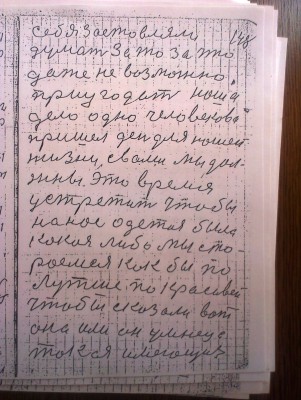 себя заставлям 148
думат За то За что
даже не возможно,
приугодат наша
дело одно человеков
пришел ден для нашей
жизни, свами мы дол-
жны. Это время
устретит чтобы
на нас одетая была
какоя либо мы сто
роемся как бы по
лутше, по красивей
чтобы сказали вот
она или он